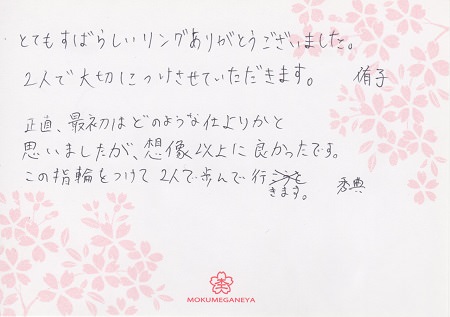 とてもすばらしいリングありがとうございました。
2人で大切につけさせていただきます。 侑子
正直、最初はどのような仕上りかと
思いましたが、想像以上に良かったです。
この指輪をつけて2人で歩んで行
きます。 秀典
MOKUMEGANEYA